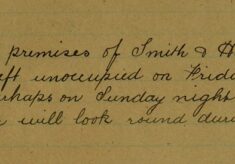 premises of Smith & H
eft unoccupied on Frida
rhaps on Sunday night
will look round duri